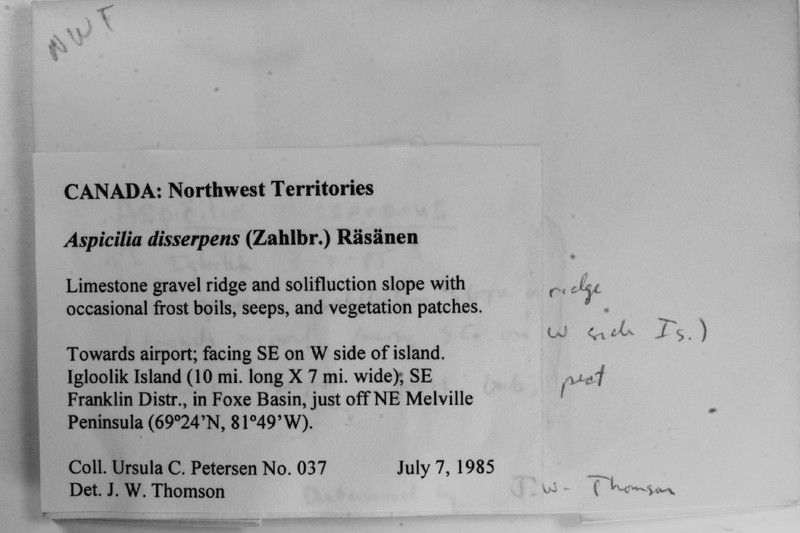 NWT
CANADA: Northwest Territories
Aspicilia disserpens (Zahlbr.) Räsänen
Limestone gravel ridge and solifluction slope with
occasional frost boils, seeps, and vegetation patches.
ridge
W side Is.)
Towards airport; facing SE on W side of island.
Igloolik Island (10 mi. long X 7 mi. wide); SE
peat
Franklin Distr., in Foxe Basin, just off NE Melville
Peninsula (69°24'N, 81°49'W).
Coll. Ursula C. Petersen No. 037 July 7, 1985
Det. J. W. Thomson
Determined by J. W. Thomson